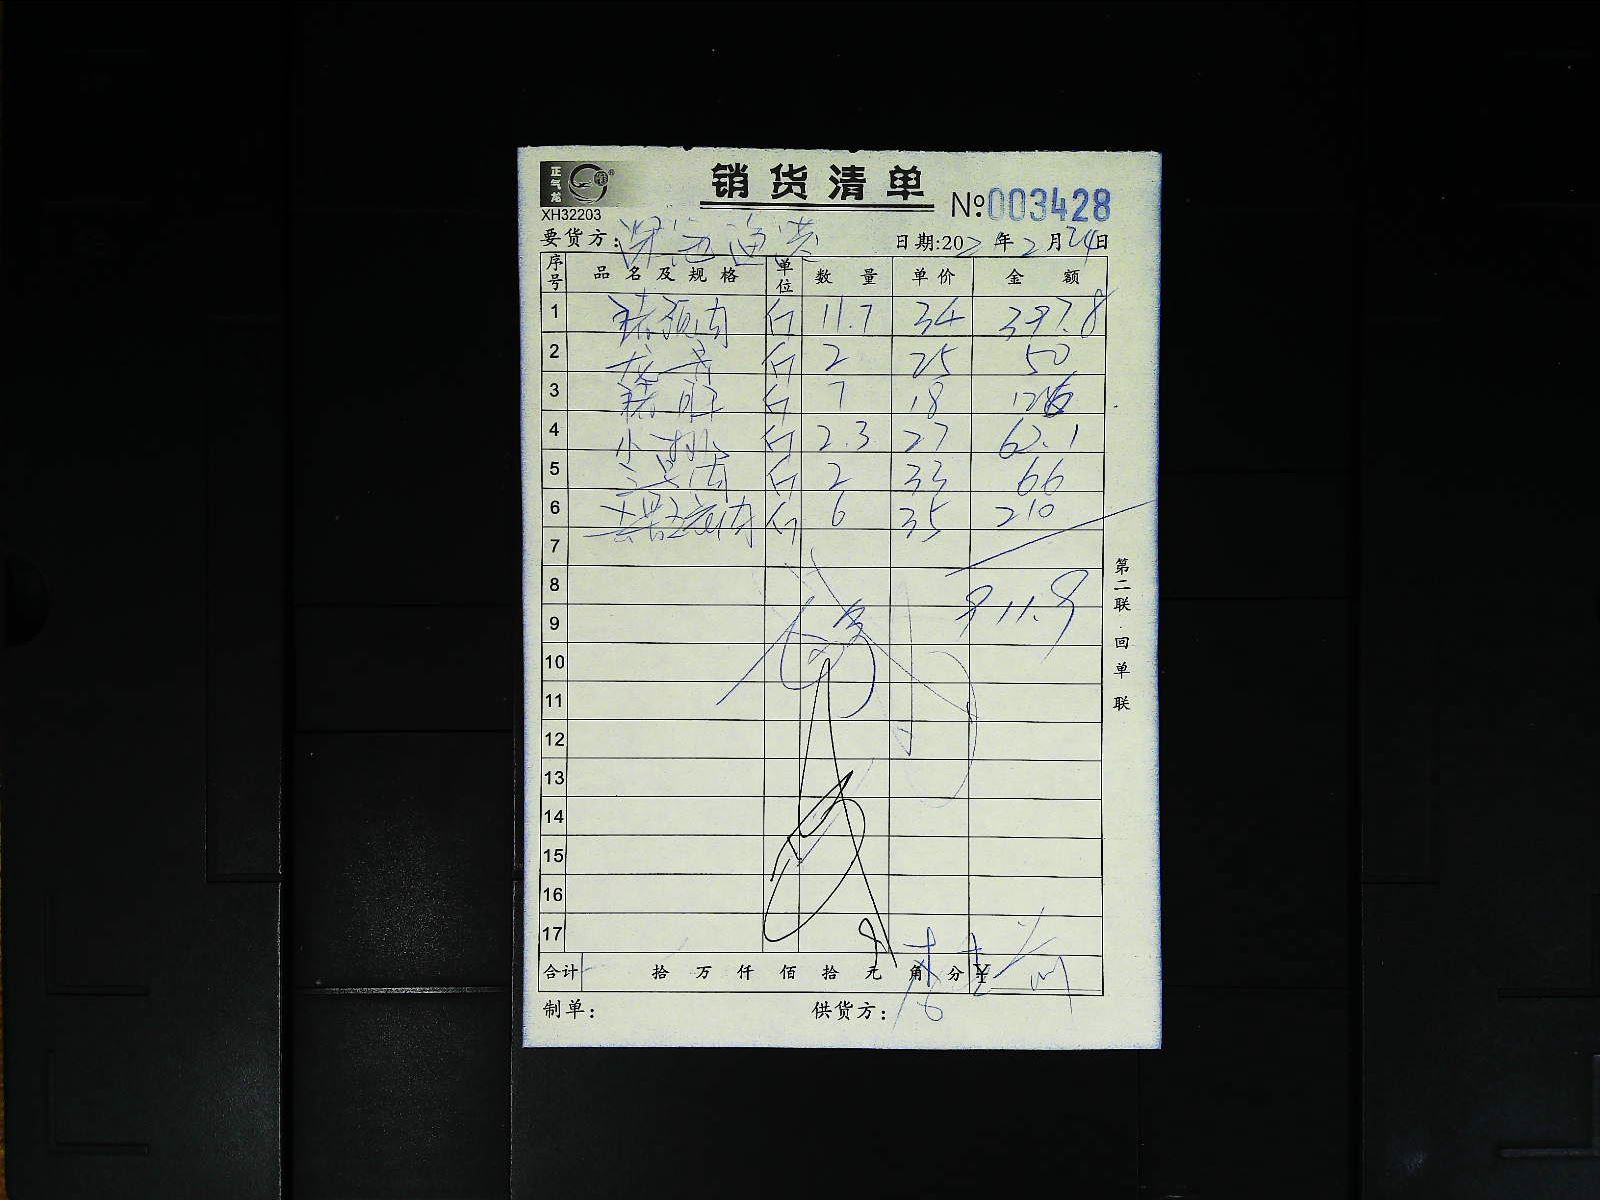 正气龙
销货清单
XH32203
№003428
要货方: 深海渔港 日期:202 年 2 月 24日
序号 品名及规格 单位 数量 单价 金额
1 猪颈肉 斤 11.7 34 397.8
2 龙骨 斤 2 25 50
3 猪肝 斤 7 18 126
4 小排 斤 2.3 27 62.1
5 肉 斤 2 33 66
6 五花肉 斤 6 35 210
7
8 911.9
9
10
11
12
13
14
15
16
17
合计 拾 万 仟 佰 拾 元 角 分 ¥
制单: 供货方:
第二联·回单联